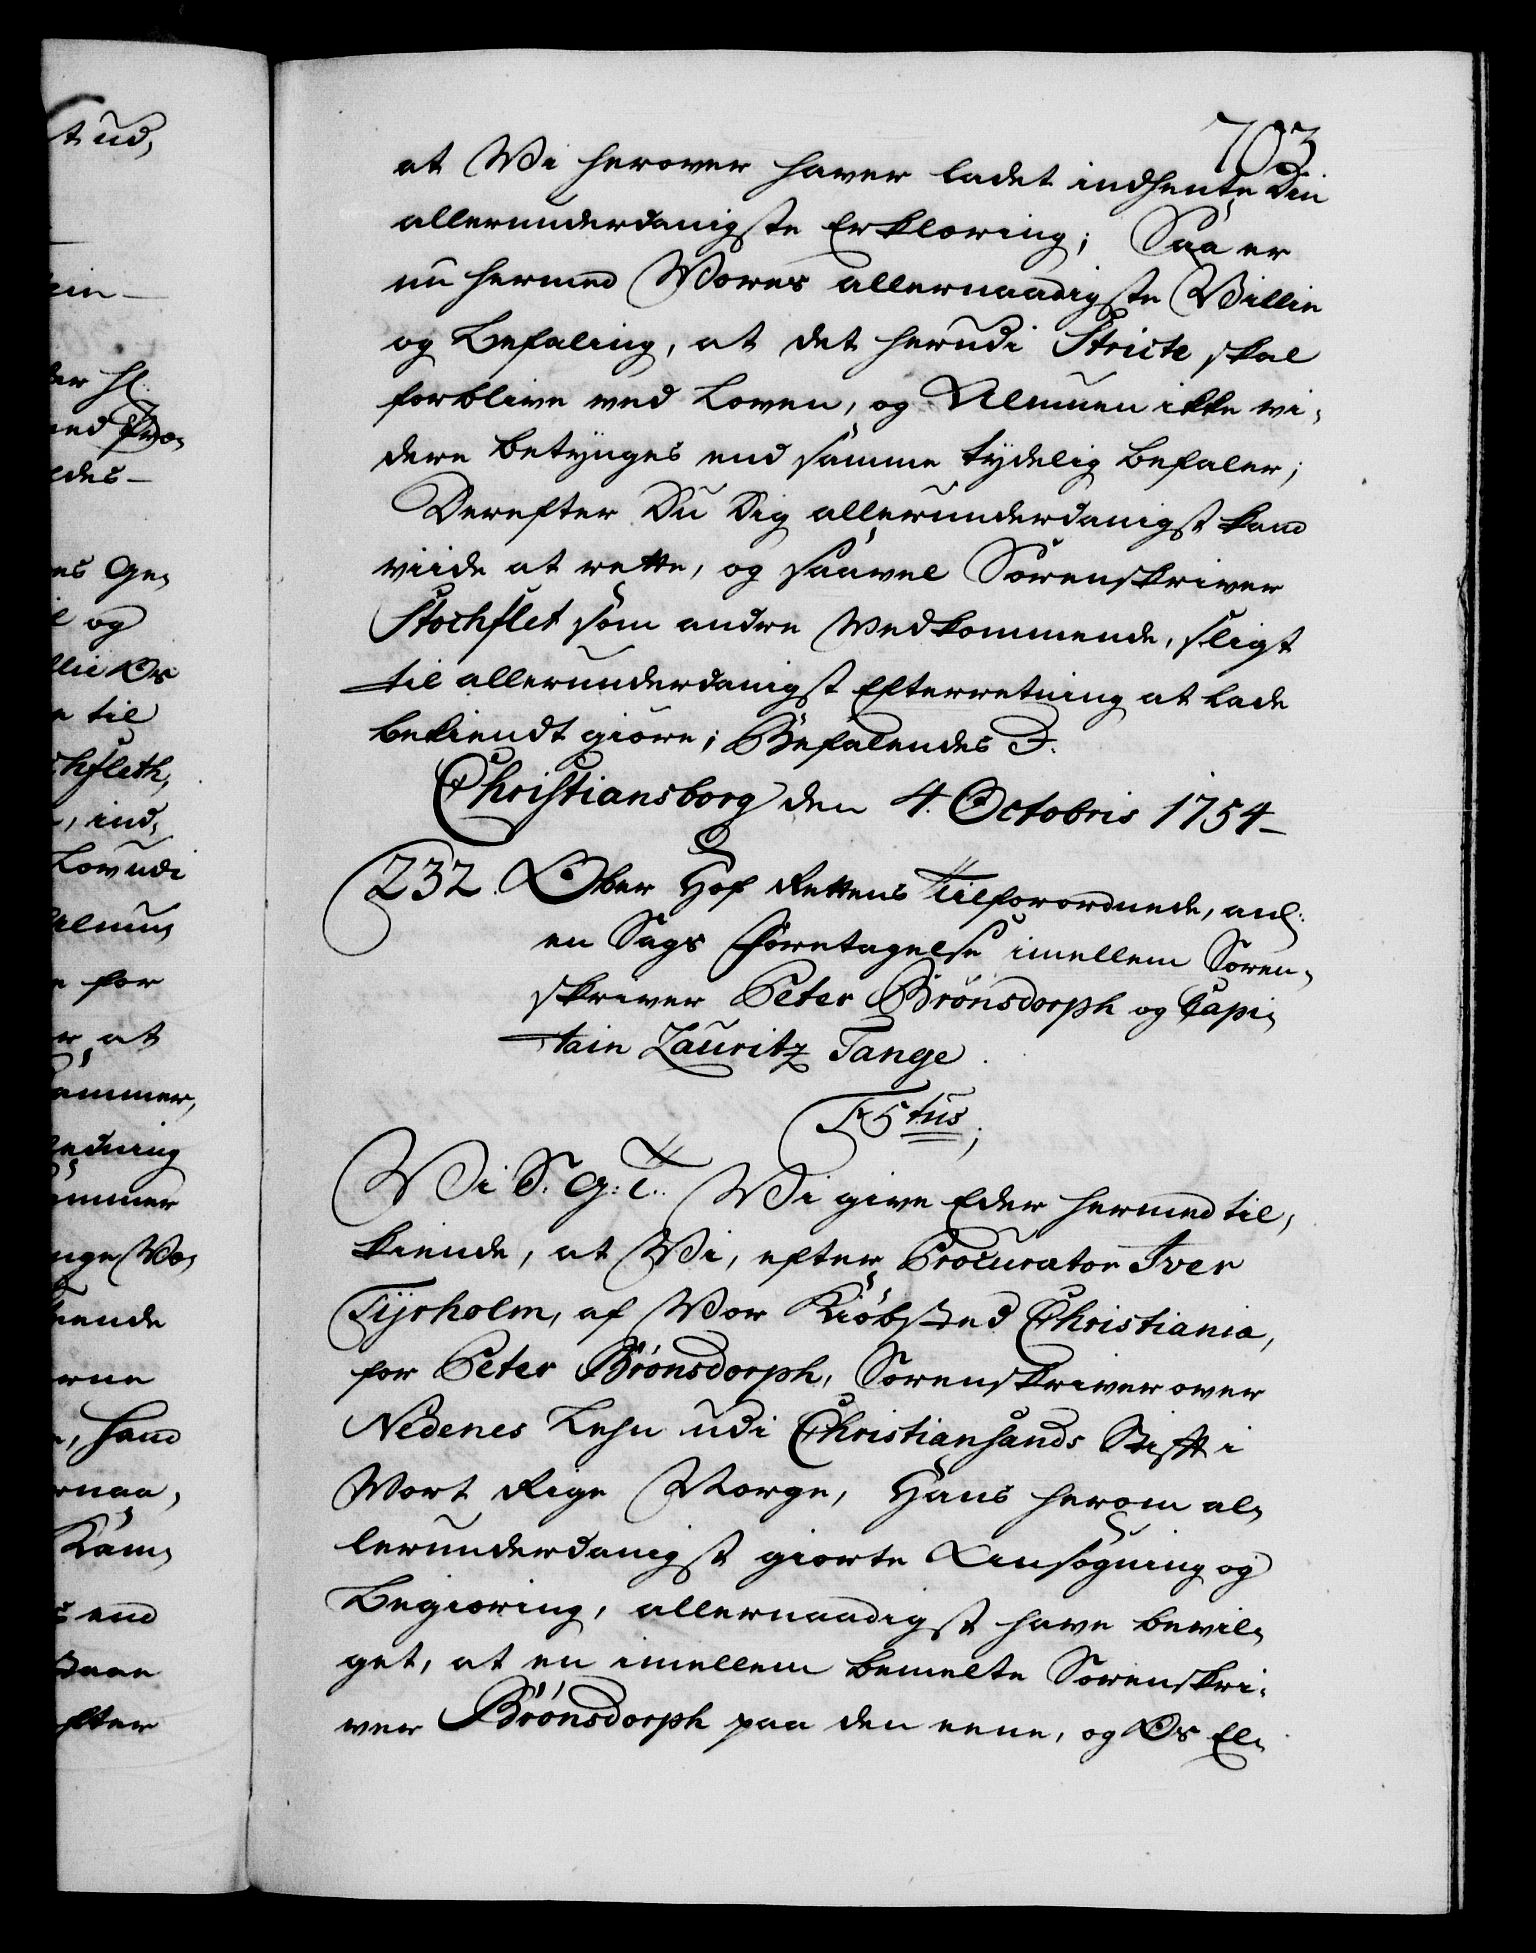 t ud,
ein-
der H.
med Pro,
ldes-
es Ge,
l og
llie Os
e til
chfleth,
, ind,
Lov udi
Almu,
e for
r at
ammer,
edning
ammer
nge Vo,
ende
erne
, hand
rnaa,
Kam,
s end
efter
703
at Wi herover haver ladet indhente Din
allerunderdanigste Erklæring; Saa er
nu hermed Vores allernaadigste Villie
og Befaling, at det herudi Stricte skal
forblive ved Loven, og Almuen ikke vi,
dere betynges end samme tydelig befaler;
Derefter Du Dig allerunderdanigst kand
viide at rette, og saavel Sorenskriver
Stochflet som andre Vedkommende, sligt
til allerunderdanigst Efterretning at lade
bekiendt giøre; Befalendes D.
Christiansborg den 4. Octobris 1754-
232. Ober Hof Rettens Tilforordnede, anl:
en Sags Foretagelse imellem Soren,
skriver Peter Brønsdorph og Capi,
tain Lauritz Tange.
F 5tus;
Wi S. G: T. Wi give Eder hermed til,
kiende, at Vi, efter Procurator Iver
Tyrholm, af Vor Kiøbsted Christiania,
for Peter Brønsdorph, Sorenskriver over
Nedenes Lehn udi Christiansands Stift i
Vort Rige Norge, Hans herom al,
lerunderdanigst giorte Ansøgning og
Begiæring, allernaadigst have bevil,
get, at en imellem bemelte Sorenskri,
ver Brønsdorph paa den eene, og Os El,